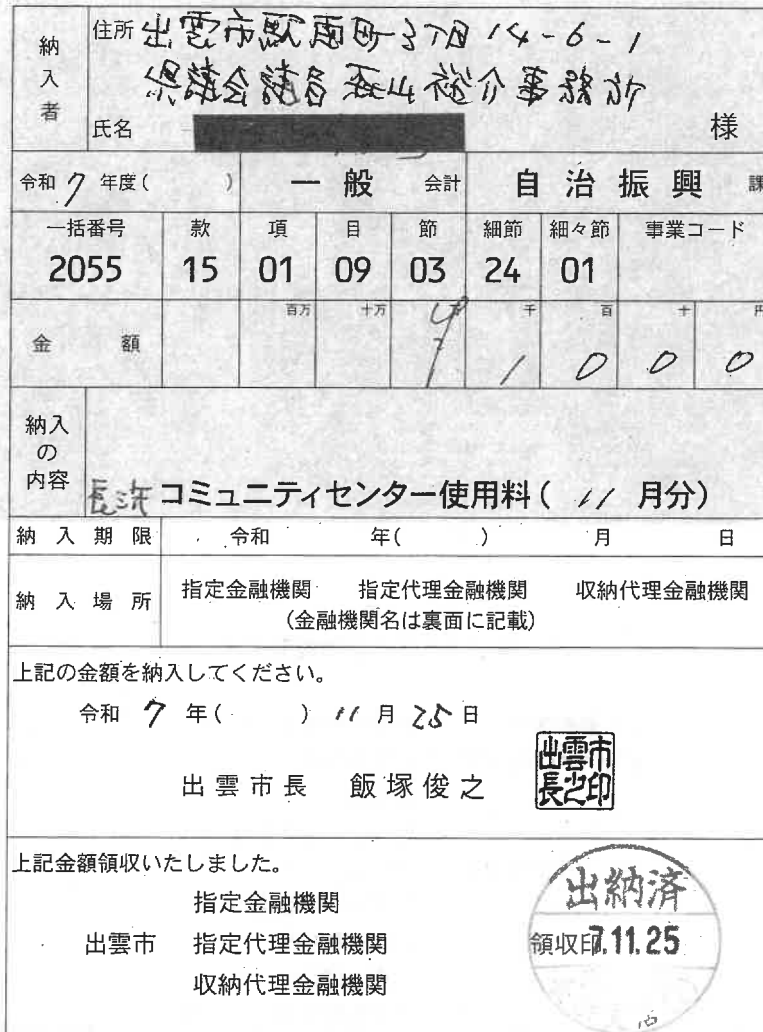 納入者
住所 出雲市駅南町3丁目14-6-1
県議会議員 森山裕介事務所
氏名 様
令和 7 年度( ) 一般 会計 自治振興 課
一括番号 款 項 目 節 細節 細々節 事業コード
2055 15 01 09 03 24 01
金額 百万 十万 千 百 十 円
¥ 1 0 0 0
納入の内容
長浜 コミュニティセンター使用料( 11 月分)
納入期限 令和 年( ) 月 日
納入場所 指定金融機関 指定代理金融機関 収納代理金融機関
(金融機関名は裏面に記載)
上記の金額を納入してください。
令和 7 年( ) 11 月 25 日
出雲市長 飯塚俊之
出雲市長之印
上記金額領収いたしました。
指定金融機関
出雲市 指定代理金融機関
収納代理金融機関
出納済
領収印 7.11.25